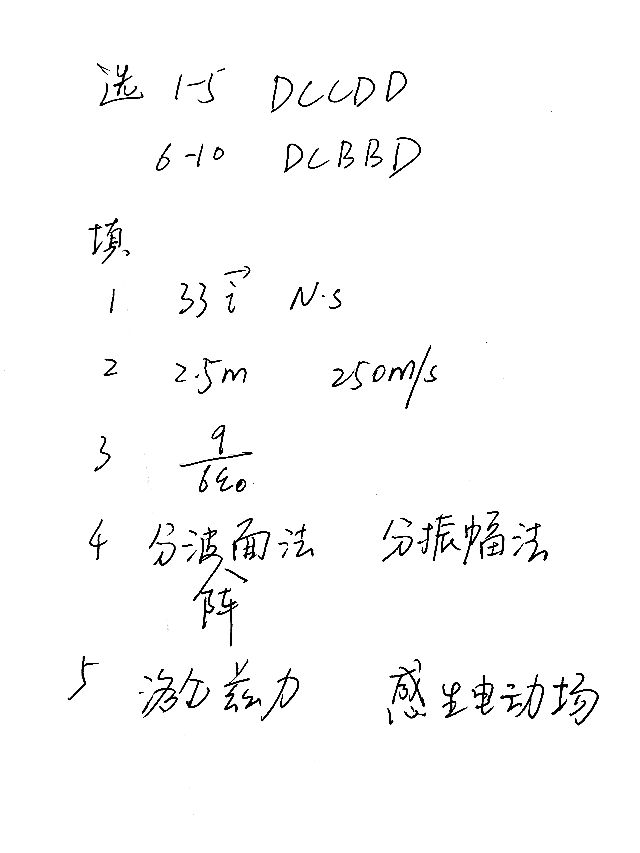 选 1-5 DCCDD
6-10 DCBBD
填
1 33i⃗ N·s
2 2.5m 250m/s
3 q/6ε₀
4 分波面法 分振幅法
阵
5 洛仑兹力 感生电动场